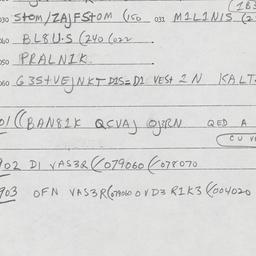 (183
030 STOM/ZAJFSTOM (150 031 M1L1N1S (2
040 BL8U.S (240 (022
050 PRALNIK.
060 G3STVEJNKT D1S=D1 VEST 2N KALT
01 ((BAN81K QCVAJ OJ3RN QED A
CU V
902 D1 VAS3R ((079060 (078070
903 OFN VAS3R (079060 OVD3 R1K3 (004020